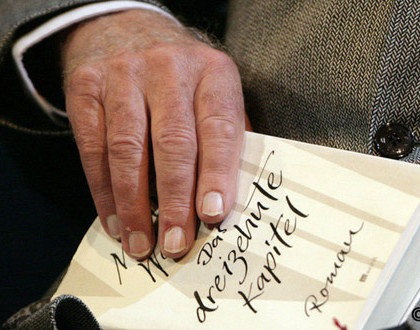 Das
dreizehnte
Kapitel
Roman